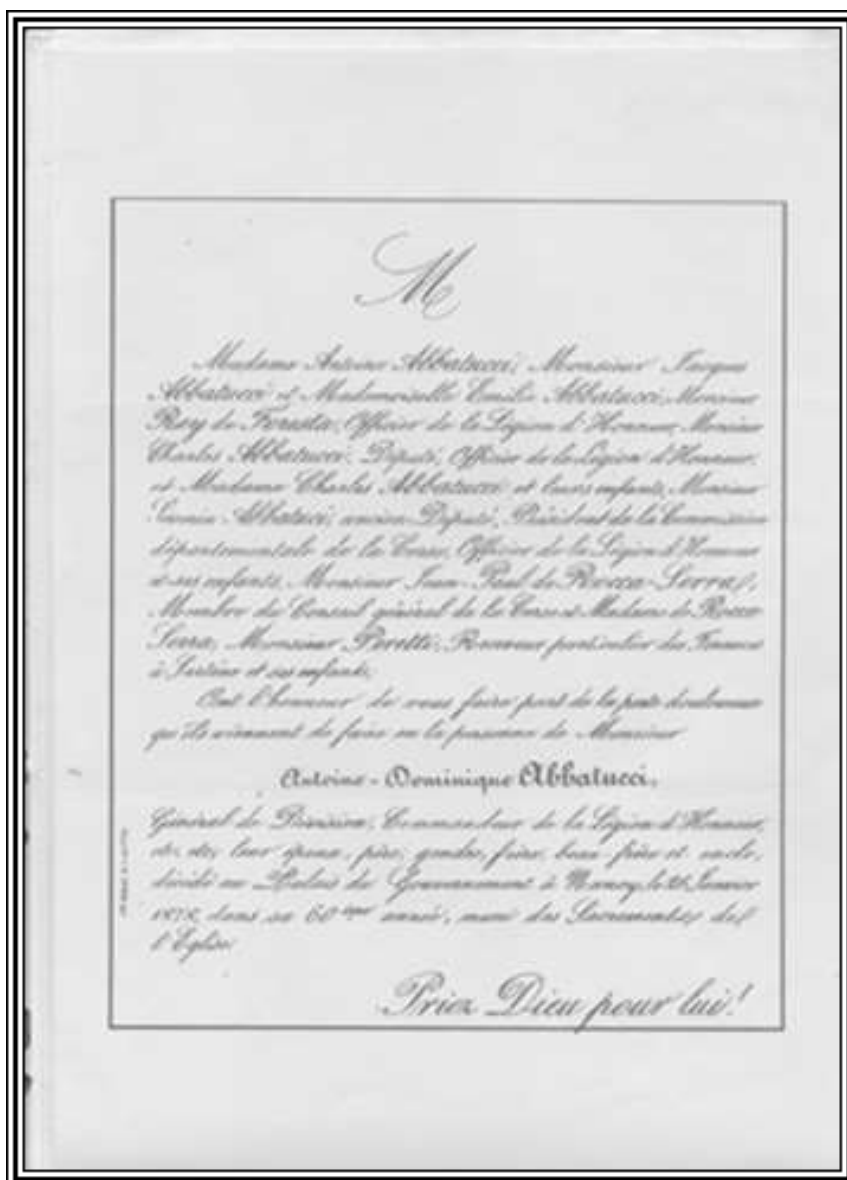 M
Madame Antoine Abbatucci, Monsieur Jacques
Abbatucci et Mademoiselle Emilie Abbatucci, Monsieur
Rey de Foresta, Officier de la Légion d'Honneur, Monsieur
Charles Abbatucci, Député, Officier de la Légion d'Honneur,
et Madame Charles Abbatucci et leurs enfants, Monsieur
Séverin Abbatucci, ancien Député, Président de la Commission
départementale de la Corse, Officier de la Légion d'Honneur
et ses enfants, Monsieur Jean-Paul de Rocca-Serra,
Membre du Conseil général de la Corse et Madame de Rocca
Serra, Monsieur Peretti, Receveur particulier des Finances
à Sartène et ses enfants,
Ont l'honneur de vous faire part de la perte douloureuse
qu'ils viennent de faire en la personne de Monsieur
Antoine-Dominique Abbatucci,
Général de Division, Commandeur de la Légion d'Honneur,
etc. etc. leur époux, père, gendre, frère, beau frère et oncle,
décédé au Palais du Gouvernement à Nancy, le 26 Janvier
1878, dans sa 60ème année, muni des Sacrements de
l'Eglise.
Priez Dieu pour lui!